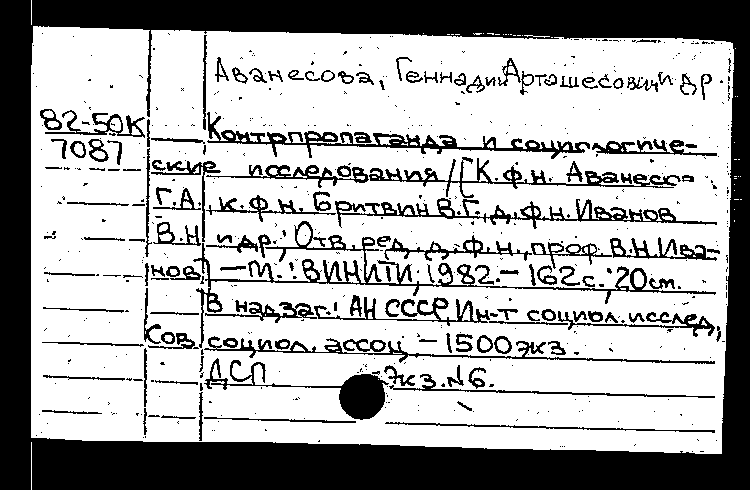 Аванесова, Геннадий Арташесович и др.
82-50К
7087
Контрпропаганда и социологиче-
ские исследования /[К.ф.н. Аванесо-
Г.А., к.ф.н. Бритвин В.Г., д.ф.н. Иванов
В.Н. и др.; Отв. ред. д.ф.н., проф. В.Н. Ива-
нов] — М.: ВИНИТИ, 1982. — 162 с.; 20 см.
В надзаг.: АН СССР, Ин-т социол. исслед.,
Сов. социол. ассоц. — 1500 экз.
ДСП Экз. №6.